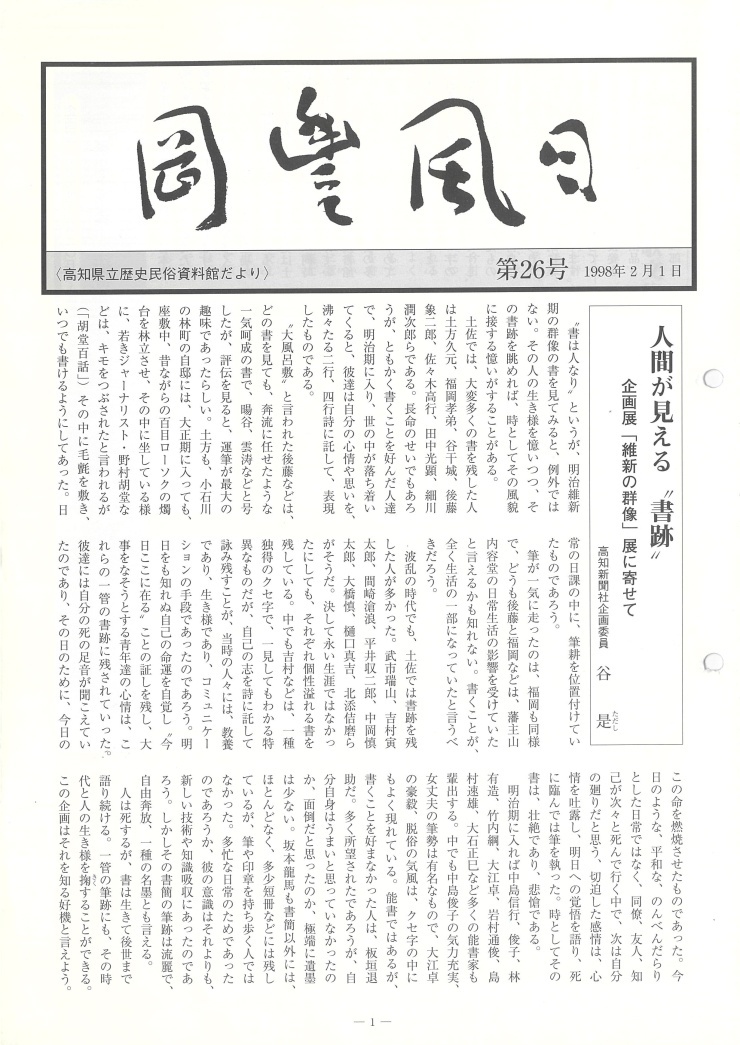 岡豊風日
〈高知県立歴史民俗資料館だより〉
第26号 1998年2月1日
人間が見える〝書跡〟
企画展「維新の群像」展に寄せて
高知新聞社企画委員 谷 是
ただし
〝書は人なり〟というが、明治維新
期の群像の書を見てみると、例外では
ない。その人の生き様を憶いつつ、そ
の書跡を眺めれば、時としてその風貌
に接する憶いがすることがある。
土佐では、大変多くの書を残した人
は土方久元、福岡孝弟、谷干城、後藤
象二郎、佐々木高行、田中光顕、細川
潤次郎らである。長命のせいでもあろ
うが、ともかく書くことを好んだ人達
で、明治期に入り、世の中が落ち着い
てくると、彼達は自分の心情や思いを、
沸々たる二行、四行詩に託して、表現
したものである。
〝大風呂敷〟と言われた後藤などは、
どの書を見ても、奔流に任せたような
一気呵成の書で、暘谷、雲濤などと号
したが、評伝を見ると、運筆が最大の
趣味であったらしい。土方も、小石川
の林町の自邸には、大正期に入っても、
座敷中、昔ながらの百目ローソクの燭
台を林立させ、その中に坐している様
に、若きジャーナリスト・野村胡堂な
どは、キモをつぶされたと言われるが
(「胡堂百話」)その中に毛氈を敷き、
いつでも書けるようにしてあった。日
常の日課の中に、筆耕を位置付けてい
たものであろう。
筆が一気に走ったのは、福岡も同様
で、どうも後藤と福岡などは、藩主山
内容堂の日常生活の影響を受けていた
と言えるかも知れない。書くことが、
全く生活の一部になっていたと言うべ
きだろう。
波乱の時代でも、土佐では書跡を残
した人が多かった。武市瑞山、吉村寅
太郎、間崎滄浪、平井収二郎、中岡慎
太郎、大橋慎、樋口真吉、北添佶磨ら
がそうだ。決して永い生涯ではなかっ
たにしても、それぞれ個性溢れる書を
残している。中でも吉村などは、一種
独得のクセ字で、一見してもわかる特
異なものだが、自己の志を詩に託して
詠み残すことが、当時の人々には、教養
であり、生き様であり、コミュニケー
ションの手段であったのであろう。明
日をも知れぬ自己の命運を自覚し〝今
日ここに在る〟ことの証しを残し、大
事をなそうとする青年達の心情は、こ
れらの一管の書跡に残されていった。
彼達には自分の死の足音が聞こえてい
たのであり、その日のために、今日の
この命を燃焼させたものであった。今
日のような、平和な、のんべんだらり
とした日常ではなく、同僚、友人、知
己が次々と死んで行く中で、次は自分
の廻りだと思う、切迫した感情は、心
情を吐露し、明日への覚悟を語り、死
に臨んでは筆を執った。時としてその
書は、壮絶であり、悲愴である。
明治期に入れば中島信行、俊子、林
有造、竹内綱、大江卓、岩村通俊、島
村速雄、大石正巳など多くの能書家も
輩出する。中でも中島俊子の気力充実、
女丈夫の筆勢は有名なもので、大江卓
の豪毅、脱俗の気風は、クセ字の中に
もよく現れている。能書ではあるが、
書くことを好まなかった人は、板垣退
助だ。多く所望されたであろうが、自
分自身はうまいと思っていなかったの
か、面倒だと思ったのか、極端に遺墨
は少ない。坂本龍馬も書簡以外には、
ほとんどなく、多少短冊などには残し
ているが、筆や印章を持ち歩く人では
なかった。多忙な日常のためであった
のであろうか、彼の意識はそれよりも、
新しい技術や知識吸収にあったのであ
ろう。しかしその書簡の筆跡は流麗で、
自由奔放、一種の名墨とも言える。
人は死するが、書は生きて後世まで
語り続ける。一管の筆跡にも、その時
代と人の生き様を掬することができる。
この企画はそれを知る好機と言えよう。
— 1 —